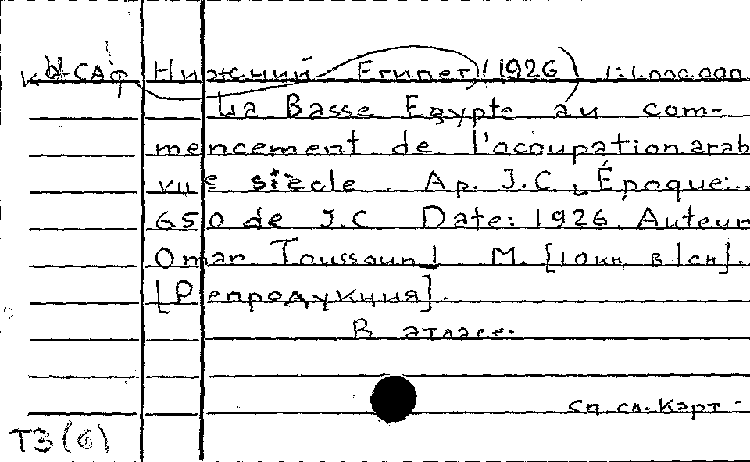 Нижний Египет (1926) 1:1.000.000
La Basse Egypte au com-
mencement de l'acoupation arab
VIIe siècle Ap. J.C. Époque:
650 de J.C. Date: 1926. Auteur
Omar Toussoun] М. [10км в 1см].
[Репродукция].
В атласе:
См. сл. карт.-
ТЗ (6)